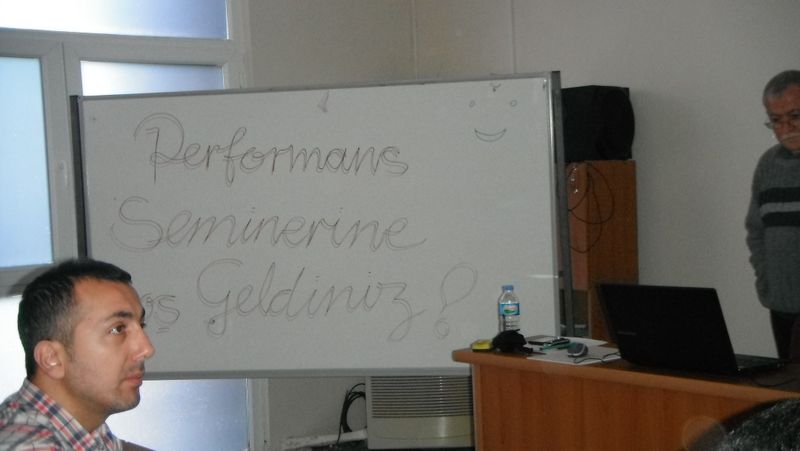 Performans
Seminerine
oş Geldiniz!